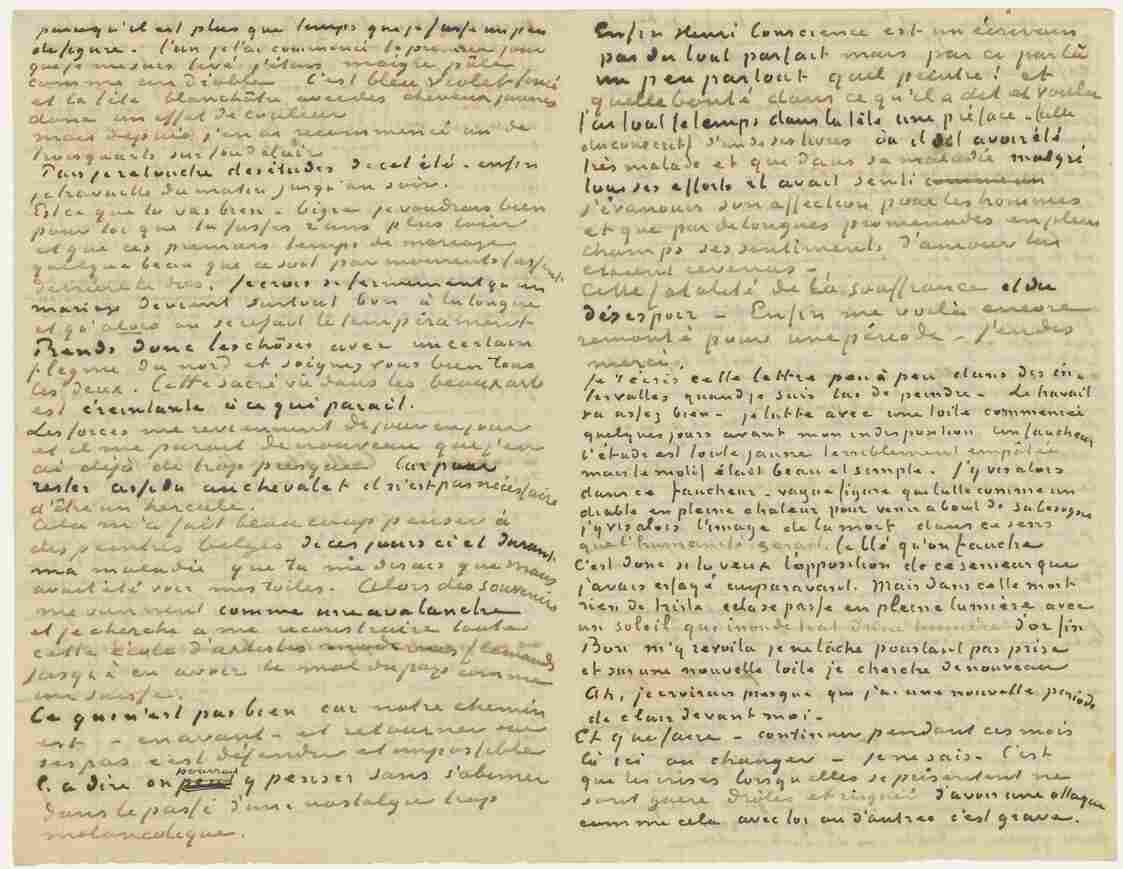 puisqu'il est plus que temps que je fasse un peu
de figure. l'un je l'ai commencé le premier jour
que je me suis levé, j'étais maigre, pâle
comme un diable. C'est bleu violet foncé
et la tête blanchâtre avec des cheveux jaunes
donc un effet de couleur
mais depuis j'en ai recommencé un de
trois quarts sur fond clair
Puis je retouche des études de cet été – enfin
je travaille du matin jusqu'au soir.
Est ce que tu vas bien – bigre je voudrais bien
pour toi que tu fusses 2 ans plus loin
et que ces premiers temps de mariage
quelque beau que ce soit par moments fussent
derrière le dos. Je crois si fermement qu'un
mariage devient surtout bon à la longue
et qu'alors on se refait le tempérament
Prends donc les choses avec un certain
flegme du nord et soignez vous bien tous
les deux. Cette sacrée vie dans les beaux arts
est éreintante à ce qui parait.
Les forces me reviennent de jour en jour
et il me parait de nouveau que j'en
ai déjà de trop presque. Car pour
rester assidu au chevalet il n'est pas nécessaire
d'être un hercule.
Cela m'a fait beaucoup penser à
des peintres belges de ces jours ci et durant
ma maladie que tu me disais que Maus
avait été voir mes toiles. Alors des souvenirs
me viennent comme une avalanche
et je cherche à me reconstruire toute
cette école d'artistes modernes flamands
jusqu'à en avoir le mal du pays comme
un suisse.
Ce qui n'est pas bien car notre chemin
est – en avant – et retourner sur
ses pas c'est défendu et impossible
C. a dire on pourrait y penser sans s'abimer
dans le passé d'une nostalgie trop
melancolique.
Enfin Henri Conscience est un écrivain
pas du tout parfait mais par ci par là
un peu partout quel peintre! et
quelle bonté dans ce qu'il a dit et voulu
J'ai tout le temps dans la tête une préface – (celle
du conscrit) d'un de ses livres où il dit avoir été
très malade et que dans sa maladie malgré
tous ses efforts il avait senti comme un
s'évanouir son affection pour les hommes
et que par de longues promenades en plein
champs ses sentiments d'amour lui
étaient revenus –
Cette fatalité de la souffrance et du
désespoir – Enfin me voilà encore
remonté pour une période – J'en dis
merci.
Je t'écris cette lettre peu à peu dans des in-
tervalles quand je suis las de peindre. Le travail
va assez bien – je lutte avec une toile commencée
quelques jours avant mon indisposition. Un faucheur
l'étude est toute jaune terriblement empâtée
mais le motif était beau et simple. J'y vis alors
dans ce faucheur – vague figure qui lutte comme un
diable en pleine chaleur pour venir à bout de sa besogne
j'y vis alors l'image de la mort dans ce sens
que l'humanité serait le blé qu'on fauche
C'est donc si tu veux l'opposition de ce semeur que
j'avais essayé auparavant. Mais dans cette mort
rien de triste cela se passe en pleine lumière avec
un soleil qui inonde tout d'une lumière d'or fin
Bon m'y revoilà je ne lâche pourtant pas prise
et sur une nouvelle toile je cherche de nouveau
Ah, je croirais presque que j'ai une nouvelle période
de clair devant moi –
Et que faire – continuer pendant ces mois
ci ici ou changer – je ne sais. C'est
que les crises lorsqu'elles se présentent ne
sont guère drôles et risquer d'avoir une attaque
comme cela avec toi ou d'autres c'est grave.